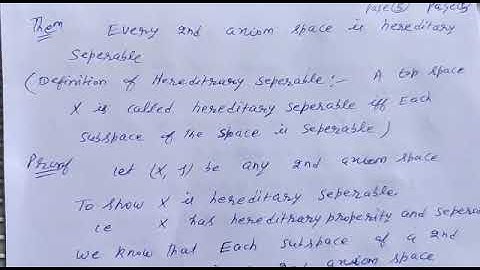 Page(5) Page(5)
Them Every 2nd axiom space is hereditary
Seperable
(Definition of Hereditrary Seperable:- A top space
X is called hereditary seperable iff Each
Subspace of the space is seperable)
Proof let (X, J) be any 2nd axiom space
To show X is hereditary seperable
ie X has hereditrary properity and sepera
we know that Each subspace of a 2nd
2nd axiom space